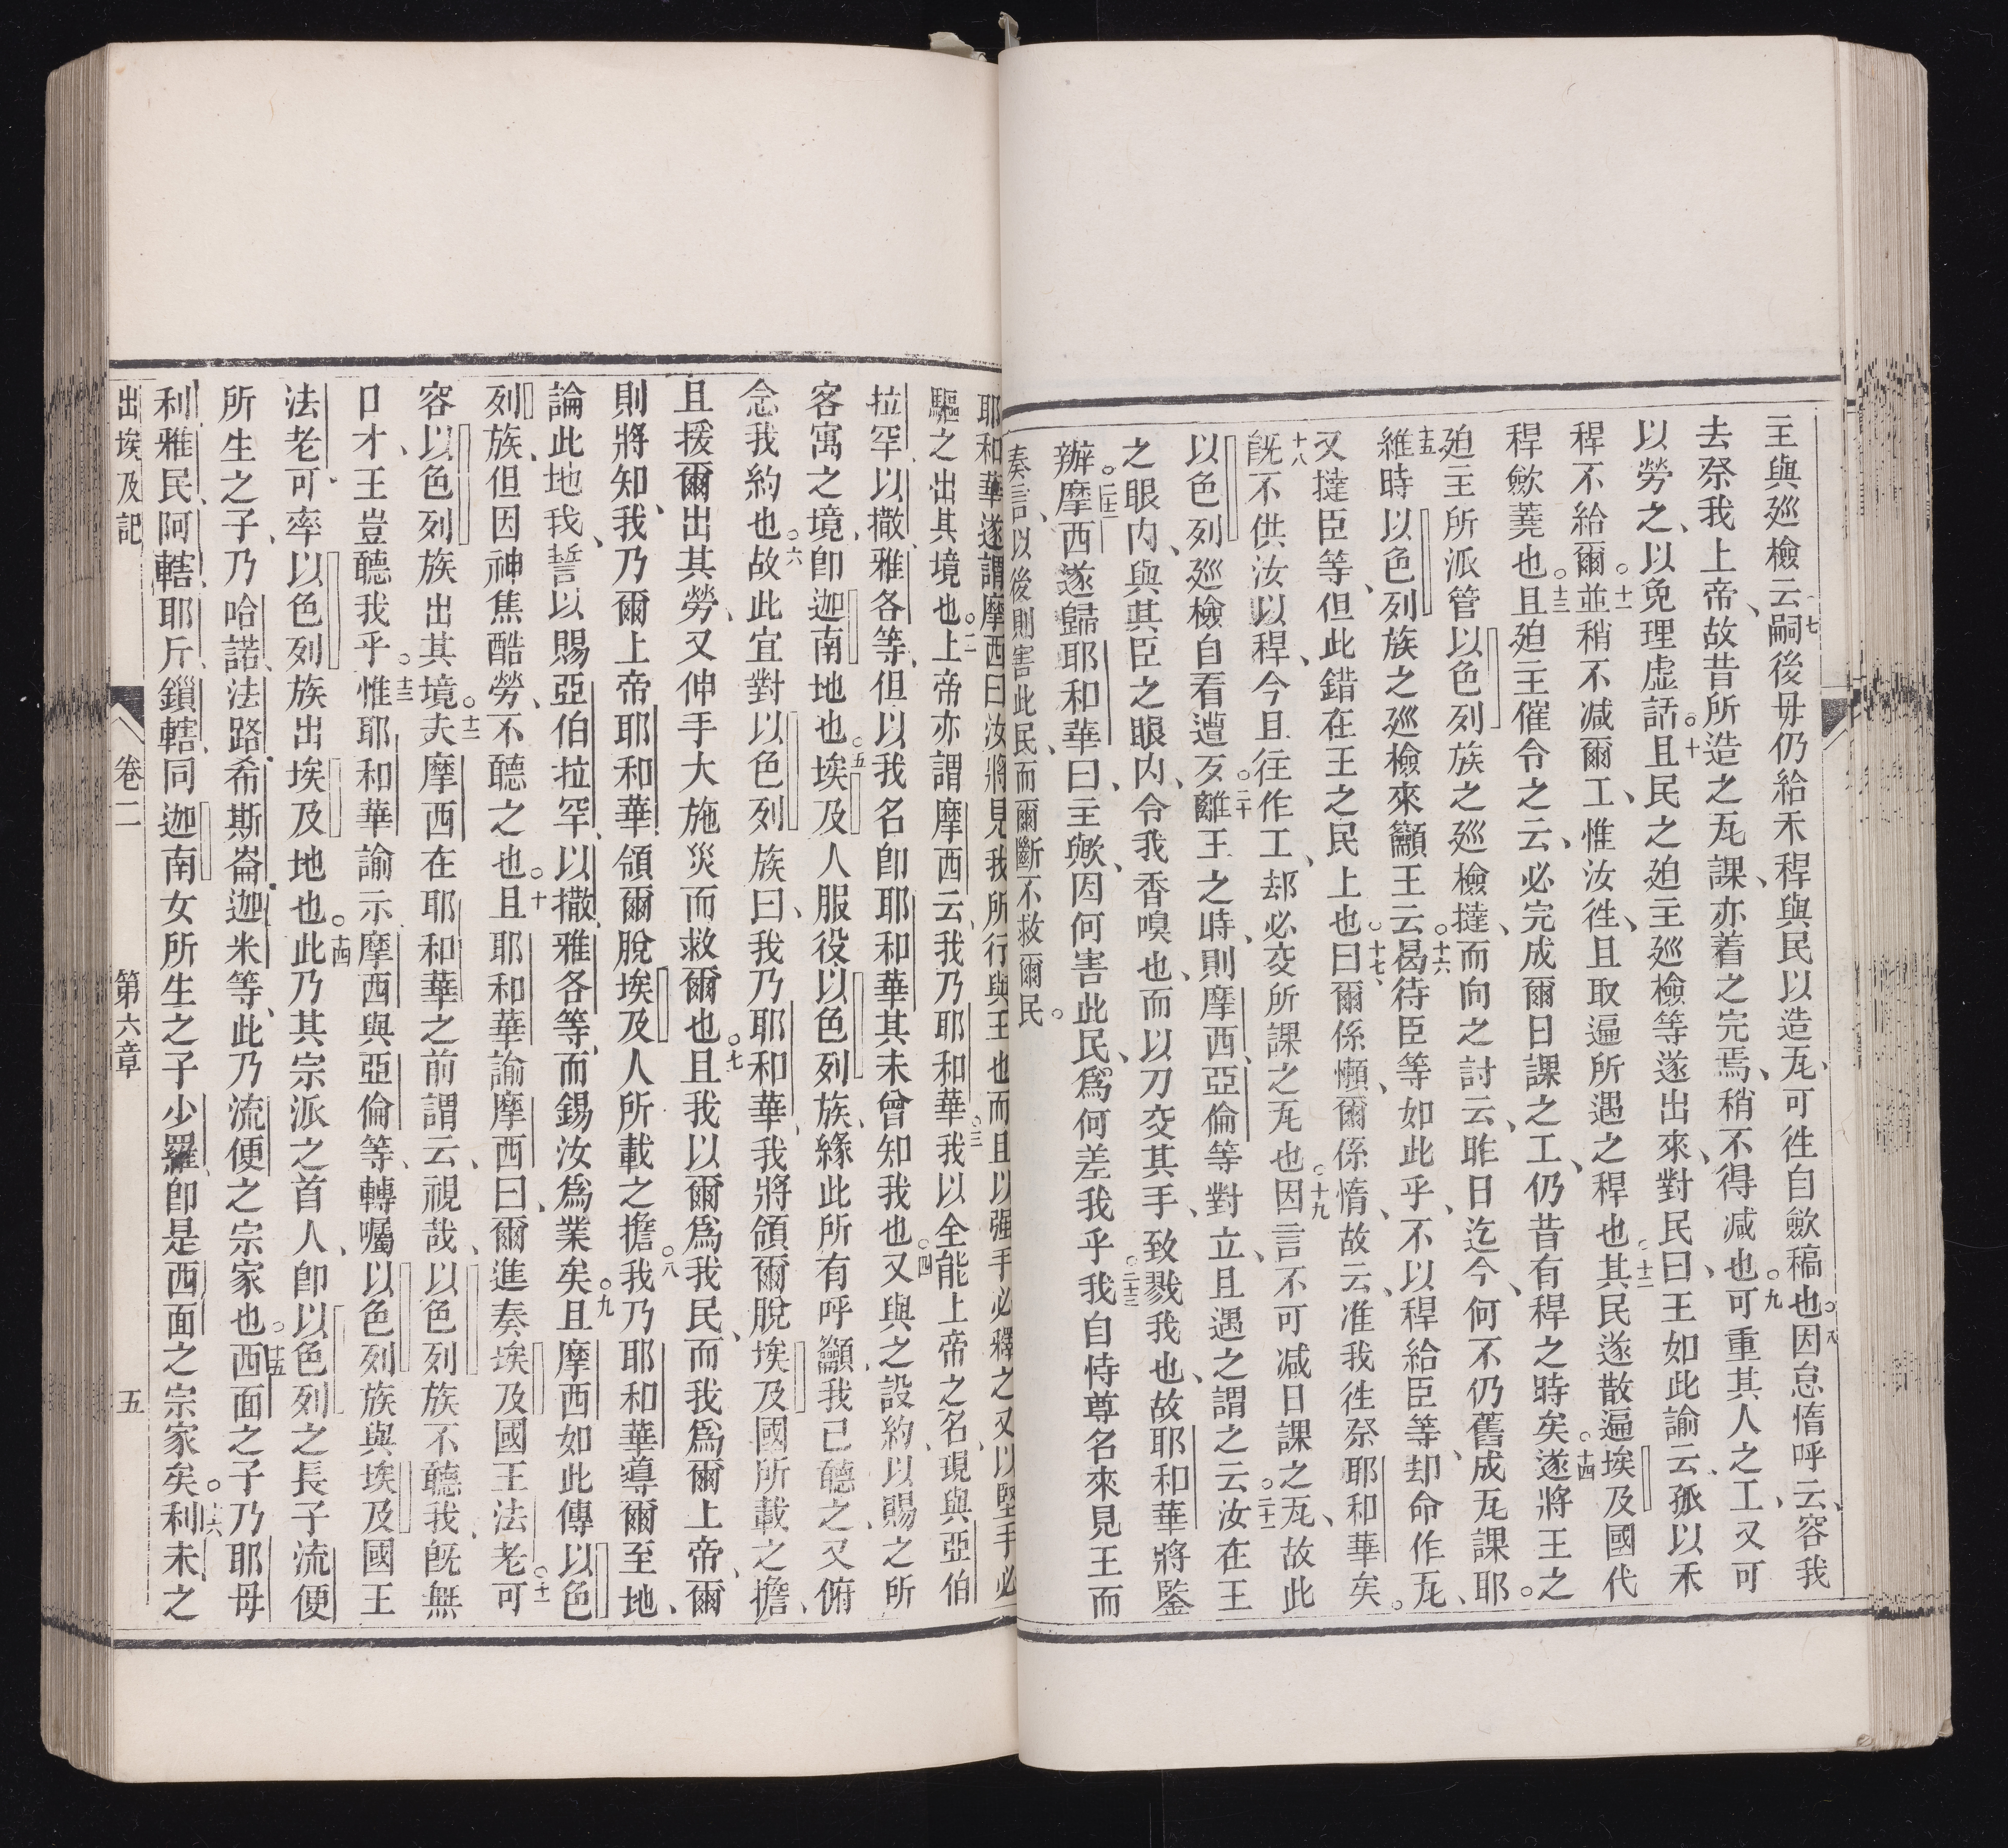 主與廵檢云嗣後毋仍給禾稈與民以造瓦、可徃自歛稿也○八因怠惰呼云、容我
去祭我上帝、故昔所造之瓦課、亦着之完焉、稍不得减也○九可重其人之工、又可
以勞之、以免理虛話○十且民之廹主廵檢等遂出來、對民曰、王如此諭云、孤以禾
稈不給爾○十一並稍不减爾工、惟汝徃、且取遍所遇之稈也○十二其民遂散遍埃及國代
稈歛蕘也○十三且廹主催令之云、必完成爾日課之工、仍昔有稈之時矣○十四遂將王之
廹主所派管以色列族之廵檢撻、而向之討云、昨日迄今、何不仍舊成瓦課耶○
十五維時以色列族之廵檢來籲王云○十六曷待臣等如此乎、不以稈給臣等、却命作瓦、
又撻臣等、但此錯在王之民上也○十七曰、爾係懶、爾係惰、故云、准我徃祭耶和華矣○
十八旣不供汝以稈、今且往作工、却必交所課之瓦也○十九因言不可减日課之瓦、故此
以色列廵檢自看遭歹○二十離王之時、則摩西、亞倫等對立、且遇之○二十一謂之云、汝在王
之眼內、與其臣之眼內、令我香嗅也、而以刀交其手、致戮我也、故耶和華將鍳
辦○二十二摩西遂歸耶和華曰、主歟、因何害此民、爲何差我乎○二十三我自恃尊名來見王而
奏言、以後則害此民、而爾斷不救爾民○
耶和華遂謂摩西曰、汝將見我所行與王也、而且以强手必釋之、又以堅手必
驅之出其境也○二上帝亦謂摩西云、我乃耶和華○三我以全能上帝之名、現與亞伯
拉罕、以撒、雅各等、但以我名卽耶和華、其未曾知我也○四又與之設約、以賜之所
客寓之境、卽迦南地也○五埃及人服役以色列族、緣此所有呼籲、我已聽之、又俯
念我約也○六故此宜對以色列族曰、我乃耶和華、我將領爾脫埃及國所載之擔、
且援爾出其勞、又伸手大施災而救爾也○七且我以爾爲我民、而我爲爾上帝、爾
則將知、我乃爾上帝耶和華、領爾脫埃及人所載之擔○八我乃耶和華導爾至地、
論此地我、誓以賜亞伯拉罕、以撒、雅各等、而錫汝爲業矣○九且摩西如此傳以色
列族、但因神焦酷勞、不聽之也○十且耶和華諭摩西曰、爾進奏埃及國王法老○十一可
容以色列族出其境○十二夫摩西在耶和華之前謂云、視哉、以色列族不聽我、旣無
口才、王豈聽我乎○十三惟耶和華諭示摩西與亞倫等、轉囑以色列族與埃及國王
法老、可率以色列族出埃及地也○十四此乃其宗派之首人、卽以色列之長子流便
所生之子、乃哈諾、法路、希斯崙、迦米等、此乃流便之宗家也○十五西面之子、乃耶毋
利、雅民、阿轄、耶斤、鎖轄、同迦南女所生之子少羅、卽是西面之宗家矣○十六利未之
出埃及記　卷二　第六章　五